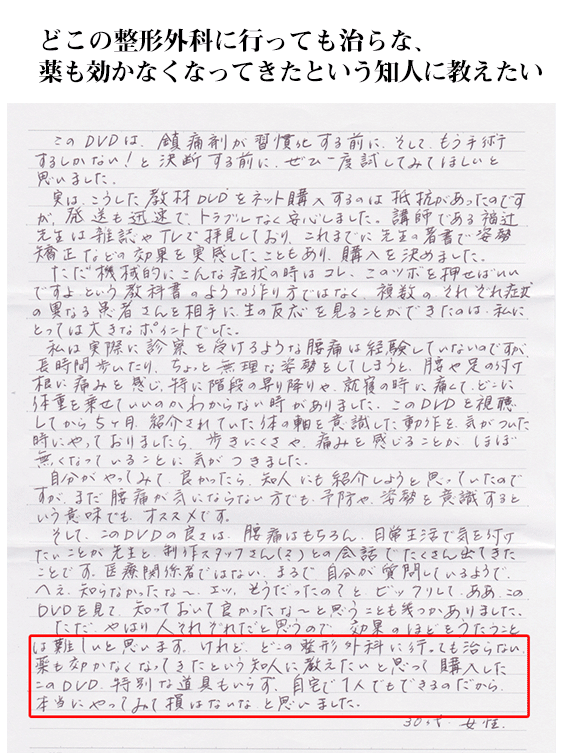 どこの整形外科に行っても治らな、
薬も効かなくなってきたという知人に教えたい
このDVDは、鎮痛剤が習慣化する前に、そして、もう手術
するしかない！と決断する前に、ぜひ一度試してみてほしいと
思いました。
実は、こうした教材DVDをネット購入するのは抵抗があったのです
が、発送も迅速で、トラブルなく安心しました。講師である福辻
先生は雑誌やTVで拝見しており、これまでに先生の著書で姿勢
矯正などの効果を実感したこともあり、購入を決めました。
ただ機械的にこんな症状の時はコレ、このツボを押せばいい
ですよ、という教科書のような作り方ではなく、複数の、それぞれ症状
の異なる患者さんを相手に、生の反応を見ることができたのは、私に
とっては大きなポイントでした。
私は実際に診察を受けるような腰痛は経験していないのですが、
長時間歩いたり、ちょっと無理な姿勢をしてしまうと、腰や足の付け
根に痛みを感じ、特に階段の昇り降りや、就寝の時に痛くて、どこに
体重を乗せていいのかわからない時がありました。このDVDを視聴
してから5ヶ月、紹介されていた体の軸を意識した動作を、気がついた
時にやっておりましたら、歩きにくさや、痛みを感じることが、ほぼ
無くなっていることに気がつきました。
自分がやってみて、良かったら、知人にも紹介しようと思っていたので
すが、まだ腰痛が気にならない方でも、予防や、姿勢を意識すると
いう意味でも、オススメです。
そして、このDVDの良さは、腰痛はもちろん、日常生活で気を付け
たいことが先生と、制作スタッフさん(?)との会話でたくさん出てきた
ことです。医療関係者ではない、まるで、自分が質問しているようで、
へえ、知らなかったな〜、エッ、そうだったの？と、ビックリして、ああ、この
DVDを見て、知っておいて良かったな〜と思うことも幾つかありました。
ただ、やはり人それぞれだと思うので、効果のほどをうたうこと
は難しいと思います。けれど、どこの整形外科に行っても治らない、
薬も効かなくなってきたという知人に教えたいと思って購入した
このDVD、特別な道具もいらず、自宅で1人でもできるのだから、
本当にやってみて損はないなと思いました。
30代 女性